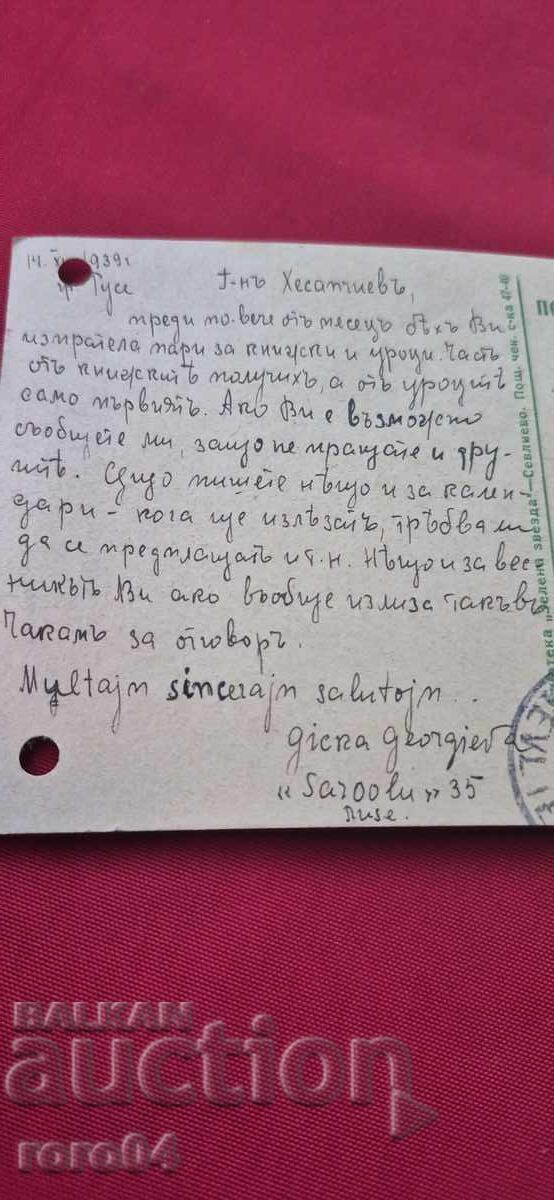 14. 1939г
гр Русе
Г-нъ Хесапчиевъ,
преди по-вече отъ месецъ бѣхъ Ви
изпратела пари за книжки и уроци. Часть
отъ книжкитѣ получихъ, а отъ уроцитѣ
само първиятъ. Ако Ви е възможно
съобщете ми, защо не пращате и дру-
гитѣ. Също пишете нѣщо и за кален-
дари - кога ще излѣзатъ, трѣбва ли
да се предплащатъ и т.н. Нѣщо и за вес-
никътъ Ви ако въобще излиза такъвъ
Чакамъ за отговоръ.
Multajn sincerajn salutojn..
Giĉka Georgieva
" " 35
Ruse.
ПО
тека „Зелена звезда" — Севлиево. Пощ. чек. с-ка 47-40
BALKAN
auction
roro04